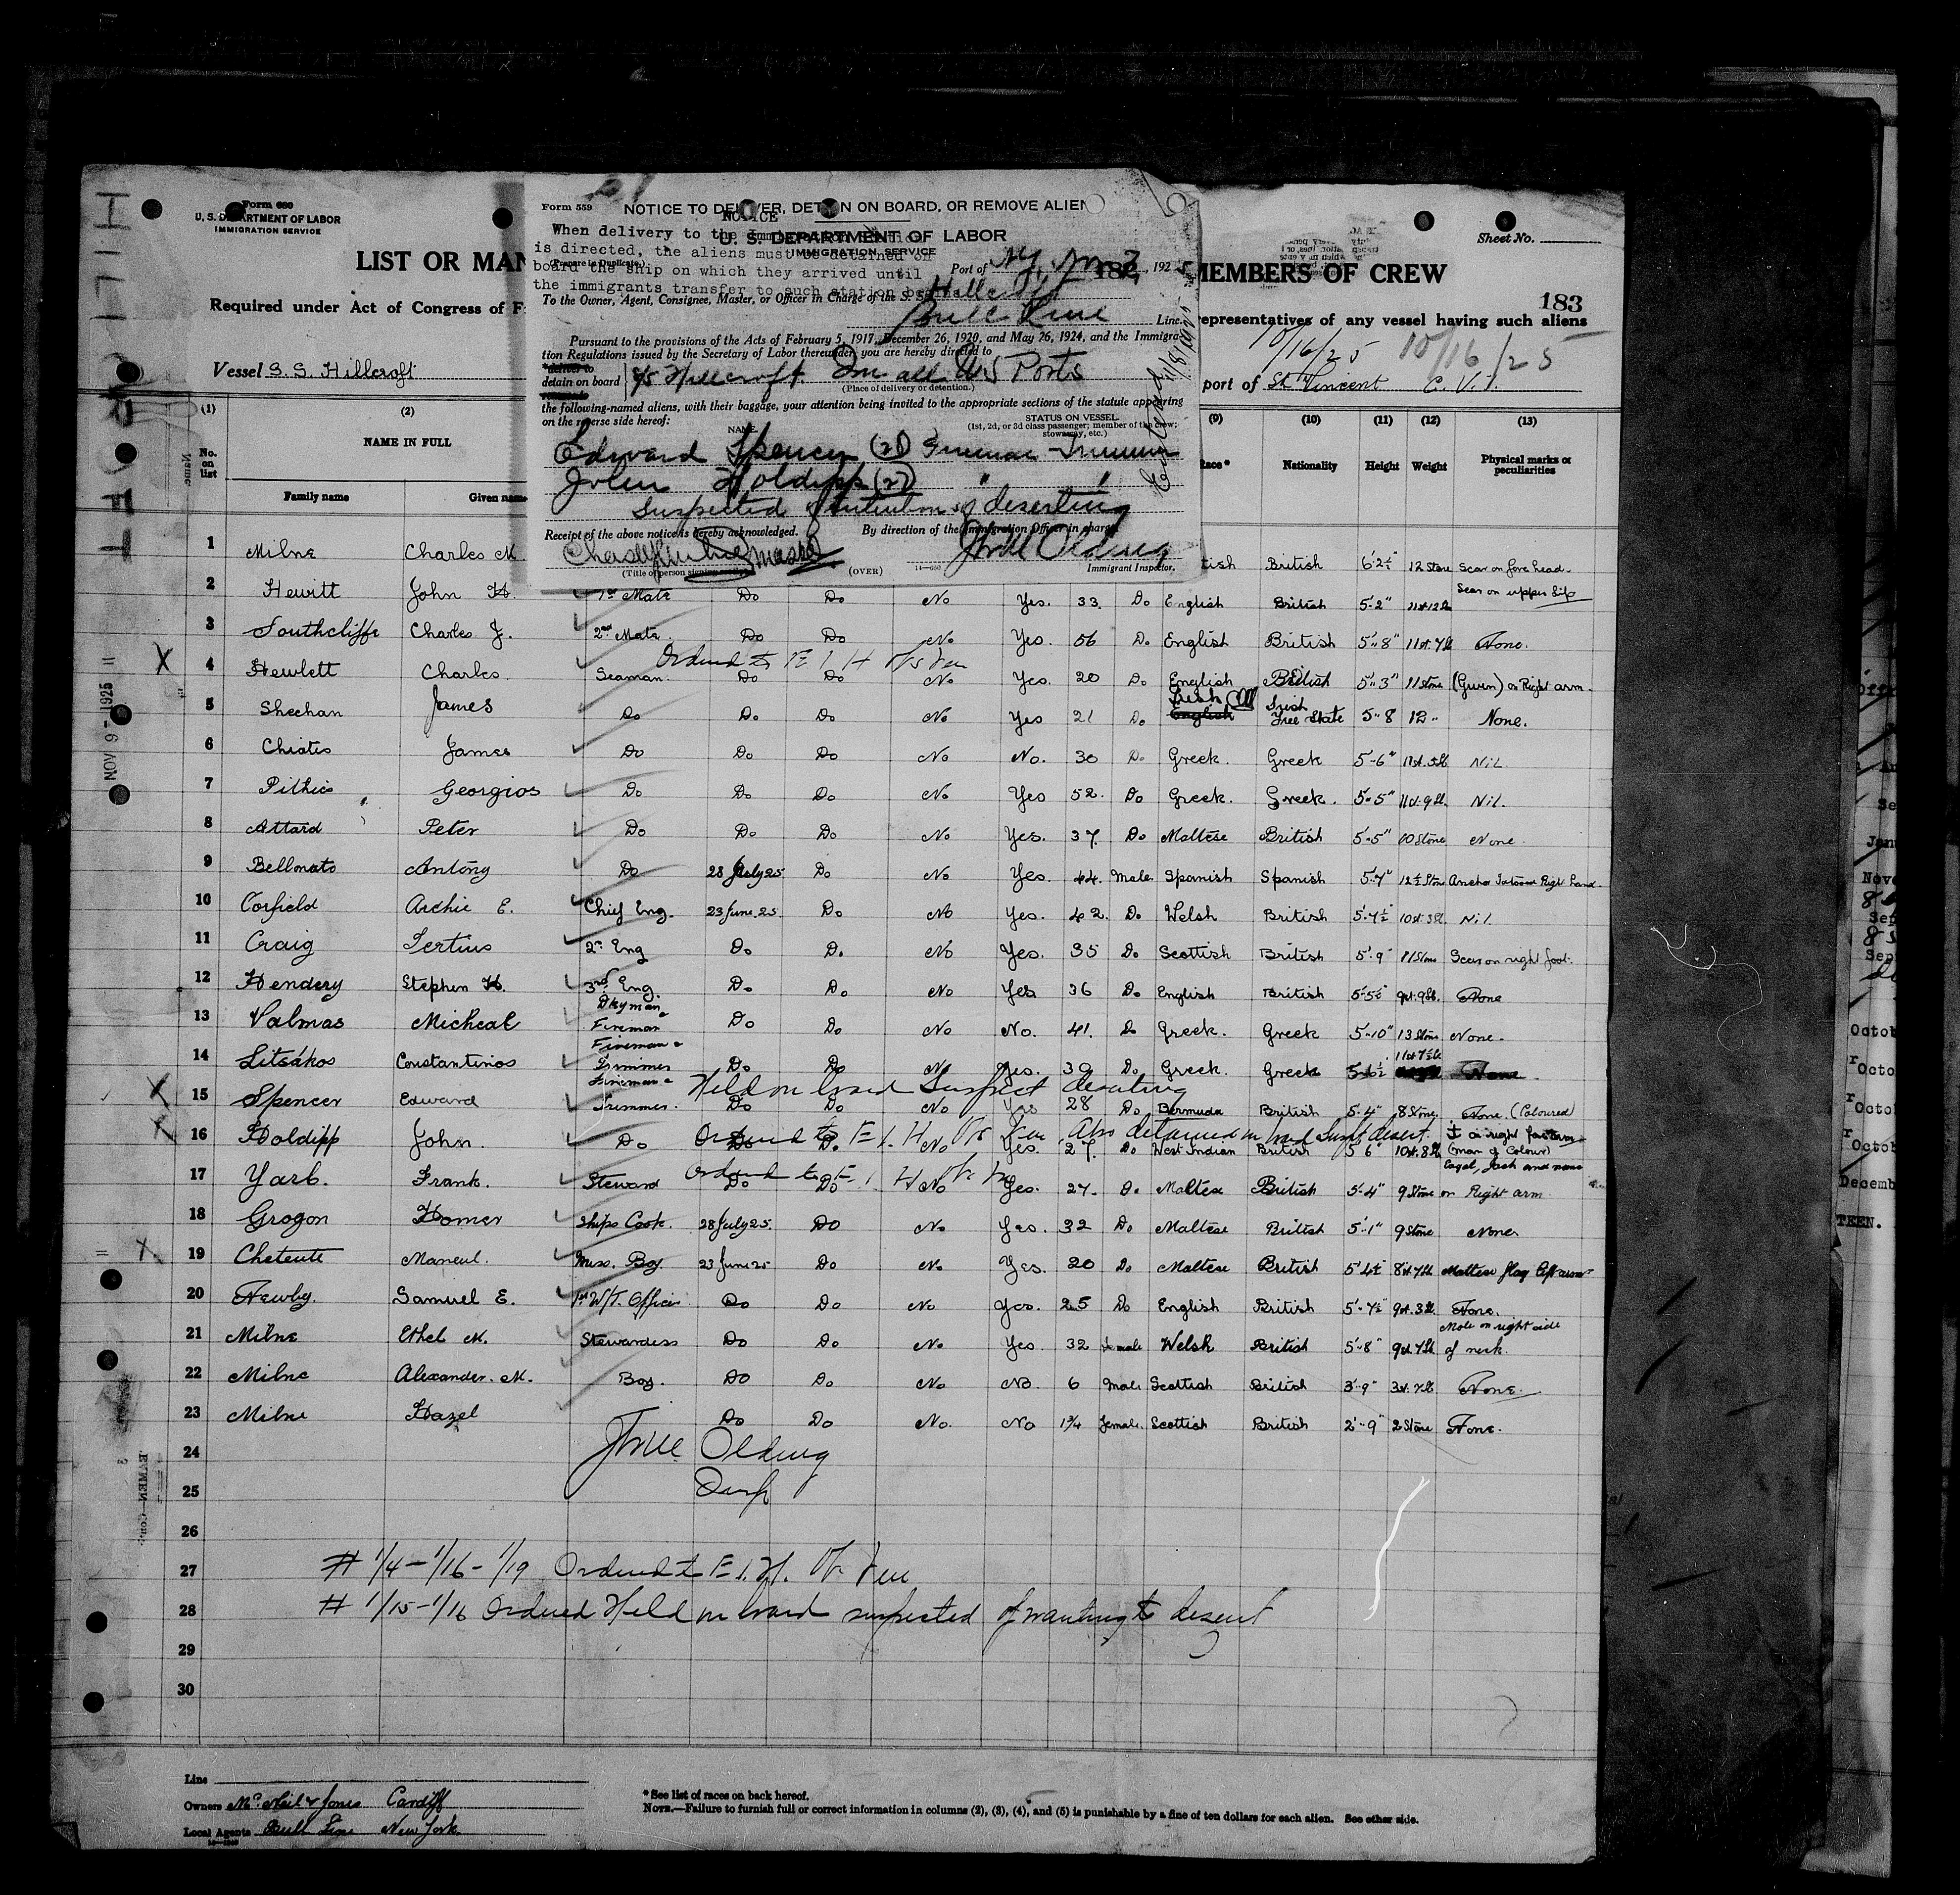 Form 680
U. S. DEPARTMENT OF LABOR
IMMIGRATION SERVICE
LIST OR MAN
Required under Act of Congress of F
Vessel S. S. Hillcroft
Form 559
NOTICE TO DELIVER, DETAIN ON BOARD, OR REMOVE ALIEN
NOTICE
When delivery to the
is directed, the aliens must be detained on
board the ship on which they arrived until
the immigrants transfer to such station be
U. S. DEPARTMENT OF LABOR
IMMIGRATION SERVICE
(Prepare in Duplicate.)
Port of N.Y. 192
To the Owner, Agent, Consignee, Master, or Officer in Charge of the S. S. Hillcroft
Bull Line Line.
Pursuant to the provisions of the Acts of February 5, 1917, December 26, 1920, and May 26, 1924, and the Immigra-
tion Regulations issued by the Secretary of Labor thereunder, you are hereby directed to
*deliver to
detain on board S/S Hillcroft In all US Ports
remove to
(Place of delivery or detention.)
the following-named aliens, with their baggage, your attention being invited to the appropriate sections of the statute appearing
on the reverse side hereof:
NAME.
STATUS ON VESSEL.
(1st, 2d, or 3d class passenger; member of the crew;
stowaway, etc.)
Edward Spencer (28) Fireman Trimmer
John Holdipp (27) " "
Suspected of intention of deserting
Receipt of the above notice is hereby acknowledged.
By direction of the Immigration Officer in charge.
Master
Olding
(Title of person signing)
(OVER)
Immigrant Inspector.
Sheet No.
MEMBERS OF CREW
183
representatives of any vessel having such aliens
10/16/25 10/16/25
port of St. Vincent C. V. I.
(1) (2) (9) (10) (11) (12) (13)
No. on list
NAME IN FULL
Family name Given name
Race* Nationality Height Weight Physical marks or peculiarities
1 Milne Charles M. British 6'2½ 12 Stone Scar on fore head.
2 Hewitt John H. 1st Mate Do Do No Yes. 33. Do English British 5'-2" 11st 12lb Scar on upper lip
3 Southcliffe Charles J. 2nd Mate. Do Do No Yes. 56 Do English British 5"8" 11st. 7lb None.
Ordered to E I H
4 Hewlett Charles. Seaman. Do Do No Yes. 20 Do English British 5"3" 11 Stone (Gwen) on Right arm.
5 Sheehan James Do Do Do No Yes 21 Do English Irish Irish Free State 5"8 12" None.
6 Chistis James Do Do Do No No. 30 Do Greek. Greek 5-6" 11st. 5lb Nil
7 Pithis Georgios Do Do Do No Yes 52. Do Greek. Greek. 5-5" 11st. 9lb. Nil.
8 Attard Peter Do Do Do No Yes. 37. Do Maltese British 5'-5" 10 Stone None.
9 Bellonato Antony Do 28 July 25 Do No Yes. 44. Male Spanish Spanish 5'-7" 12½ Stone Anchor Tatooed Right hand.
10 Corfield Archie E. Chief Eng. 23 June. 25 Do No Yes. 42. Do Welsh British 5'-7½" 10st. 3lb. Nil.
11 Craig Tertius 2nd Eng Do Do. No Yes. 35 Do Scottish British 5'-9" 11 Stone Scar on right foot.
12 Hendery Stephen H. 3rd Eng. Do Do No Yes 36 Do English British 5'-5½" 9st. 9lb. None
13 Valmas Micheal Dkyman & Fireman Do Do No No. 41. Do Greek. Greek 5-10" 13 Stone None.
14 Litsákos Constantinos Fireman & Trimmer Do Do No Yes. 39 Do Greek. Greek 5-6½ 11st 7½lb None.
Held on board Suspect deserting
15 Spencer Edward Fireman & Trimmer. Do Do No Yes 28 Do Bermuda British 5-4" 8 Stone None. (Coloured)
Ordered to E. I. H. Also detained on board Suspt desert.
16 Holdipp John. Do Do Do No Yes. 27. Do West Indian British 5'6" 10st. 8lb (man of Colour)
Ordered to E. I. H
17 Yarb. Frank. Steward Do Do No Yes. 27. Do. Maltese British 5'-4" 9 Stone on Right arm
18 Grogon Homer Ships Cook. 28 July 25. Do No Yes. 32 Do Maltese British 5'-1" 9 Stone None
19 Chetcute Maneul. Mess. Boy 23 June 25 Do No Yes. 20 Do Maltese British 5'4½ 8st. 7lb Maltese flag left arm
20 Newby. Samuel E. 1st W/T. Officer Do Do No Yes. 25 Do English British 5'-7½" 9st. 3lb. None.
21 Milne Ethel M. Stewardess Do Do No Yes. 32 Female Welsh British 5'-8" 9st 7lb Mole on right side of neck.
22 Milne Alexander. M. Boy. Do Do No No. 6 Male Scottish British 3'-9" 3st. 7lb None.
23 Milne Hazel Do Do No. No 1¾ female. Scottish British 2'-9" 2 Stone None.
24 Olding
25
26
27 # 1/4 – 1/16 – 1/19 Ordered to E. I. H.
28 # 1/15 – 1/16 Ordered Held on board suspected of wanting to desert
29
30
NOV 9 - 1925
Line
Owners Mc. Neil & Jones Cardiff
Local Agents Bull Line New York.
* See list of races on back hereof.
NOTE.—Failure to furnish full or correct information in columns (2), (3), (4), and (5) is punishable by a fine of ten dollars for each alien. See other side.